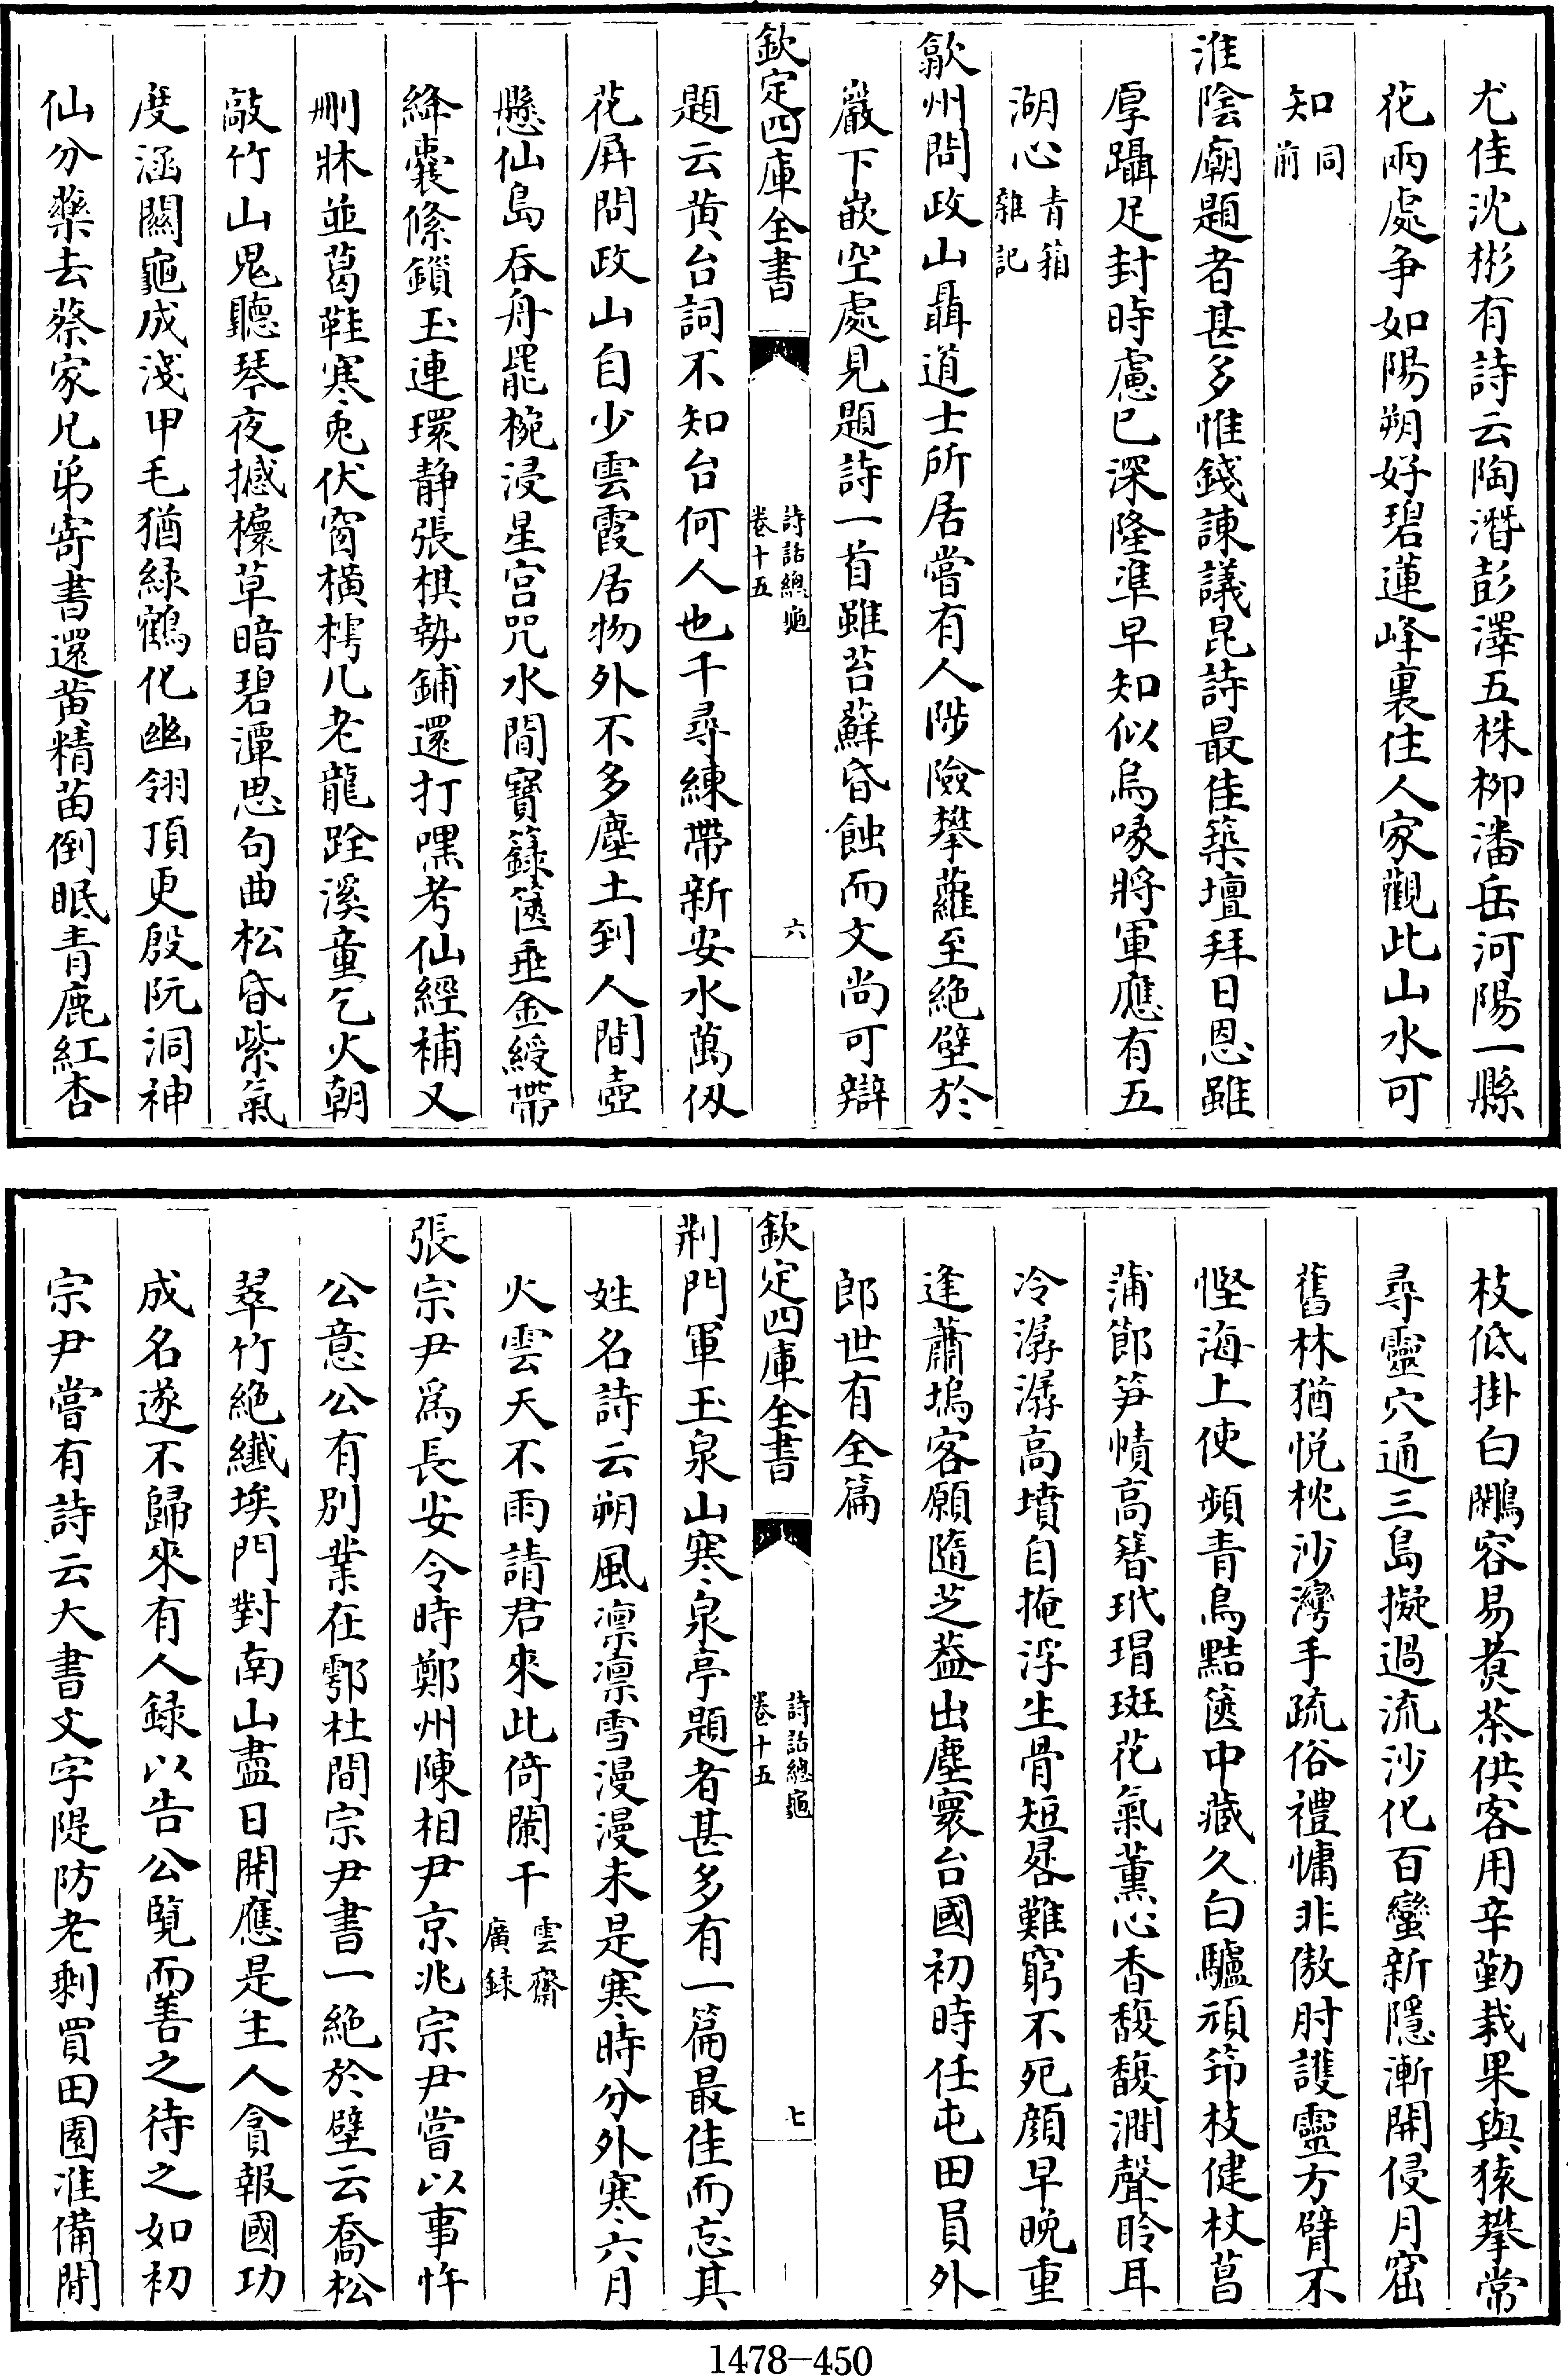 尤佳沈彬有詩云陶潛彭澤五株柳潘岳河陽一縣
花兩處争如陽朔好碧蓮峰裏住人家觀此山水可
知同前
淮陰廟題者甚多惟錢諫議昆詩最佳築壇拜日恩雖
厚躡足封時慮已深隆準早知似烏喙將軍應有五
湖心青箱雜記
歙州問政山聶道士所居嘗有人陟險攀蘿至絶壁於
巖下嵌空處見題詩一首雖苔蘚昏蝕而文尚可辯
欽定四庫全書
詩話總龜
卷十五
六
題云黄台詞不知台何人也千尋練帶新安水萬仭
花屏問政山自少雲霞居物外不多塵土到人間壺
懸仙島吞舟罷椀浸星宫咒水閒寶籙篋垂金綬帶
絳囊絛鎖玉連環静張棋勢鋪還打嘿考仙經補又
刪牀並葛鞋寒兎伏窗横楞几老龍跧溪童乞火朝
敲竹山鬼聽琴夜撼櫰草暗碧潭思句曲松昏紫氣
度涵關龜成淺甲毛猶緑鶴化幽翎頂更殷阮洞神
仙分藥去蔡家兄弟寄書還黄精苗倒眠青鹿紅杏
枝低掛白鷳容易煑茶供客用辛勤栽果與猿攀常
尋靈穴通三島擬過流沙化百蠻新隱漸開侵月窟
舊林猶悦枕沙灣手疏俗禮慵非傲肘護靈方臂不
慳海上使頻青鳥黠篋中藏久白驢頑筇枝健杖菖
蒲節笋幘高簪玳瑁斑花氣薰心香馥馥澗聲聆耳
冷潺潺高墳自掩浮生骨短晷難窮不死顔早晩重
逢蕭塢客願隨芝葢出塵寰台國初時任屯田員外
郎世有全篇
欽定四庫全書
詩話總龜
卷十五
七
荆門軍玉泉山寒泉亭題者甚多有一篇最佳而忘其
姓名詩云朔風凛凛雪漫漫未是寒時分外寒六月
火雲天不雨請君來此倚闌干雲齋廣録
張宗尹爲長安令時鄭州陳相尹京兆宗尹嘗以事忤
公意公有别業在鄠杜間宗尹書一絶於壁云喬松
翠竹絶纖埃門對南山盡日開應是主人貪報國功
成名遂不歸來有人録以告公覧而善之待之如初
宗尹嘗有詩云大書文字隄防老剩買田園准備閒
1478-450